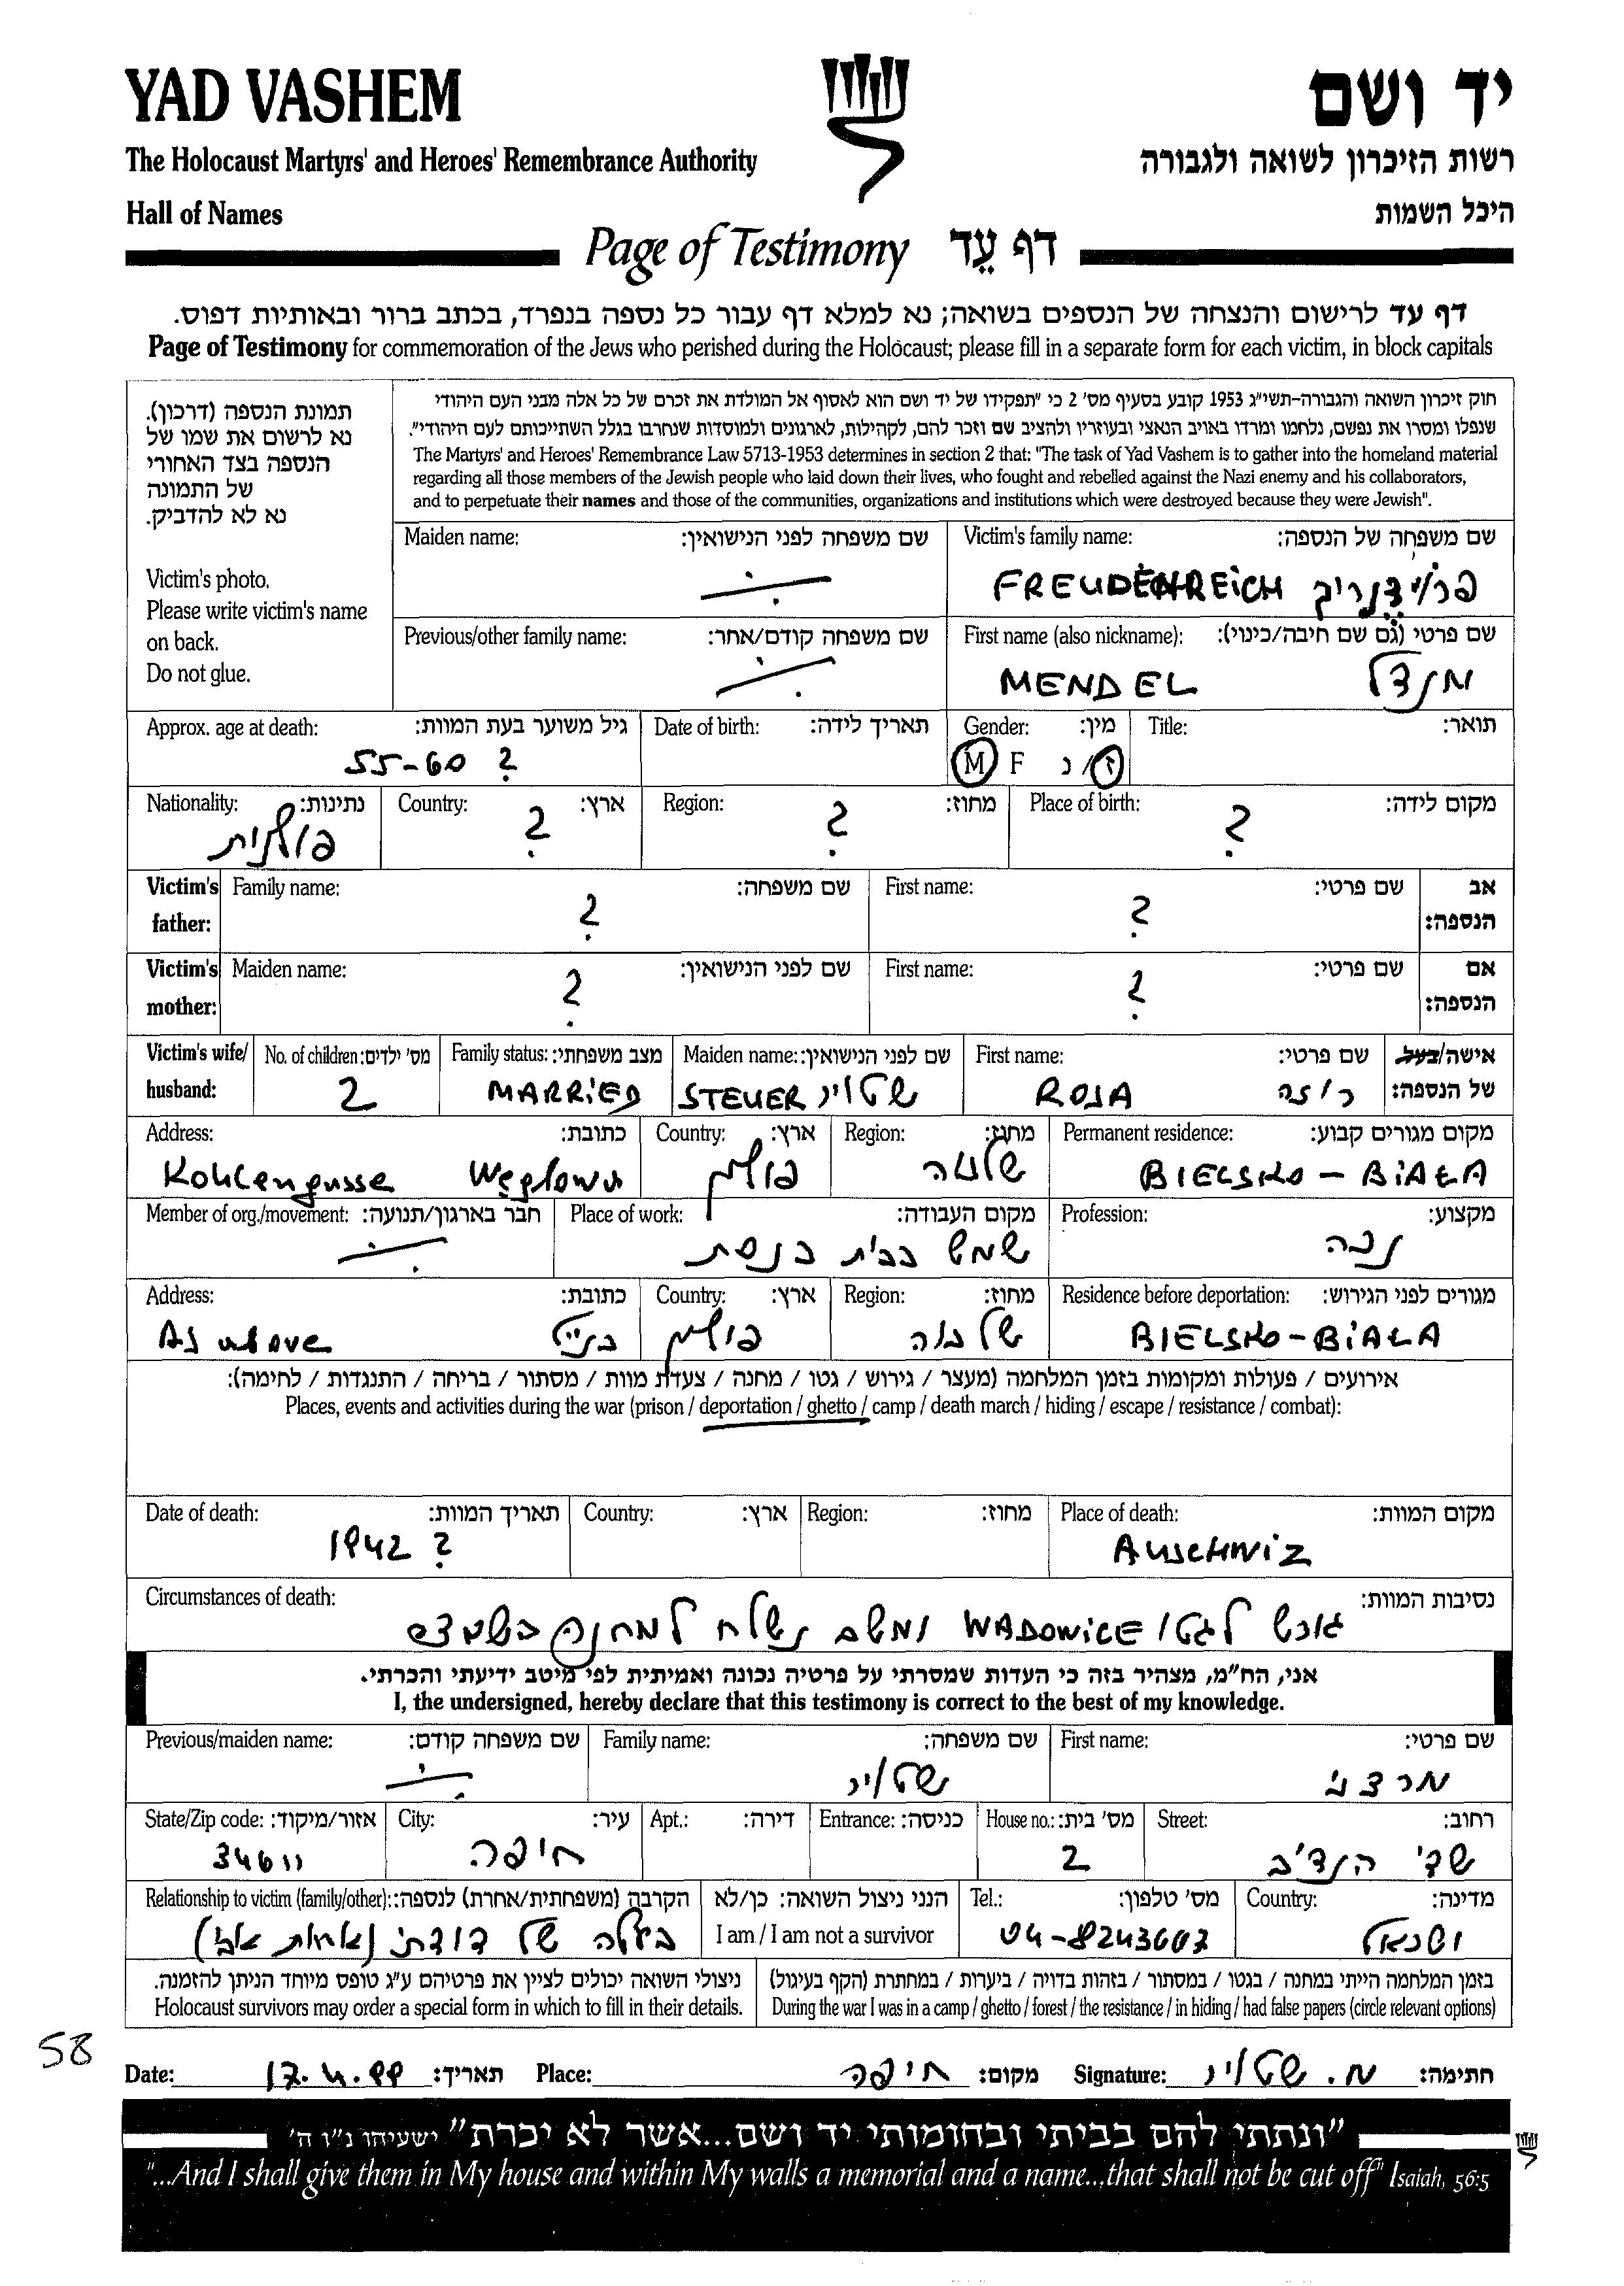 YAD VASHEM
יד ושם
The Holocaust Martyrs' and Heroes' Remembrance Authority
רשות הזיכרון לשואה ולגבורה
Hall of Names
היכל השמות
Page of Testimony דף עֵד
דף עד לרישום והנצחה של הנספים בשואה; נא למלא דף עבור כל נספה בנפרד, בכתב ברור ובאותיות דפוס.
Page of Testimony for commemoration of the Jews who perished during the Holocaust; please fill in a separate form for each victim, in block capitals
תמונת הנספה (דרכון).
נא לרשום את שמו של
הנספה בצד האחורי
של התמונה
נא לא להדביק.
Victim's photo.
Please write victim's name
on back.
Do not glue.
חוק זיכרון השואה והגבורה-תשי"ג 1953 קובע בסעיף מס' 2 כי "תפקידו של יד ושם הוא לאסוף אל המולדת את זכרם של כל אלה מבני העם היהודי
שנפלו ומסרו את נפשם, נלחמו ומרדו באויב הנאצי ובעוזריו ולהציב שם וזכר להם, לקהילות, לארגונים ולמוסדות שנחרבו בגלל השתייכותם לעם היהודי".
The Martyrs' and Heroes' Remembrance Law 5713-1953 determines in section 2 that: "The task of Yad Vashem is to gather into the homeland material
regarding all those members of the Jewish people who laid down their lives, who fought and rebelled against the Nazi enemy and his collaborators,
and to perpetuate their names and those of the communities, organizations and institutions which were destroyed because they were Jewish".
Victim's family name: שם משפחה של הנספה:
FREUDENREICH פרוידנריך
Maiden name: שם משפחה לפני הנישואין:
First name (also nickname): שם פרטי (גם שם חיבה/כינוי):
MENDEL מנדל
Previous/other family name: שם משפחה קודם/אחר:
Title: תואר:
Gender: מין:
M F ז/נ
Date of birth: תאריך לידה:
Approx. age at death: גיל משוער בעת המוות:
55-60 ?
Place of birth: מקום לידה:
?
Region: מחוז:
?
Country: ארץ:
?
Nationality: נתינות:
פולנית
Victim's father: אב הנספה:
First name: שם פרטי:
?
Family name: שם משפחה:
?
Victim's mother: אם הנספה:
First name: שם פרטי:
?
Maiden name: שם לפני הנישואין:
?
Victim's wife/husband: אישה/בעל של הנספה:
First name: שם פרטי:
ROSA רוזה
Maiden name: שם לפני הנישואין:
STEUER שטויר
Family status: מצב משפחתי:
MARRIED
No. of children: מס' ילדים:
2
Permanent residence: מקום מגורים קבוע:
BIELSKO - BIAŁA
Region: מחוז:
שלזיה
Country: ארץ:
פולין
Address: כתובת:
Kohlengasse Węglowa
Profession: מקצוע:
נכה
Place of work: מקום העבודה:
שמש בבית כנסת
Member of org./movement: חבר בארגון/תנועה:
Residence before deportation: מגורים לפני הגירוש:
BIELSKO-BIAŁA
Region: מחוז:
שלזיה
Country: ארץ:
פולין
Address: כתובת:
As above כנ"ל
אירועים / פעולות ומקומות בזמן המלחמה (מעצר / גירוש / גטו / מחנה / צעדת מוות / מסתור / בריחה / התנגדות / לחימה):
Places, events and activities during the war (prison / deportation / ghetto / camp / death march / hiding / escape / resistance / combat):
Place of death: מקום המוות:
Auschwiz
Region: מחוז:
Country: ארץ:
Date of death: תאריך המוות:
1942 ?
Circumstances of death: נסיבות המוות:
גורש לגטו WADOWICE ומשם נשלח למחנה השמדה
אני, הח"מ, מצהיר בזה כי העדות שמסרתי על פרטיה נכונה ואמיתית לפי מיטב ידיעתי והכרתי.
I, the undersigned, hereby declare that this testimony is correct to the best of my knowledge.
First name: שם פרטי:
מרצלי
Family name: שם משפחה:
שטויר
Previous/maiden name: שם משפחה קודם:
Street: רחוב:
שד' הנדיב
House no.: מס' בית:
2
Entrance: כניסה:
Apt.: דירה:
City: עיר:
חיפה
State/Zip code: אזור/מיקוד:
34611
Country: מדינה:
ישראל
Tel.: מס' טלפון:
04-8243607
הנני ניצול השואה: כן/לא
I am / I am not a survivor
Relationship to victim (family/other): הקרבה (משפחתית/אחרת) לנספה:
בעלה של דודתי (אחות אבי)
בזמן המלחמה הייתי במחנה / בגטו / במסתור / בזהות בדויה / ביערות / במחתרת (הקף בעיגול)
During the war I was in a camp / ghetto / forest / the resistance / in hiding / had false papers (circle relevant options)
ניצולי השואה יכולים לציין את פרטיהם ע"ג טופס מיוחד הניתן להזמנה.
Holocaust survivors may order a special form in which to fill in their details.
58
Date: 17.4.99 תאריך: Place: חיפה מקום: Signature: מ. שטויר חתימה:
"ונתתי להם בביתי ובחומותי יד ושם...אשר לא יכרת" ישעיהו נ"ו ה'
"...And I shall give them in My house and within My walls a memorial and a name...that shall not be cut off" Isaiah, 56:5